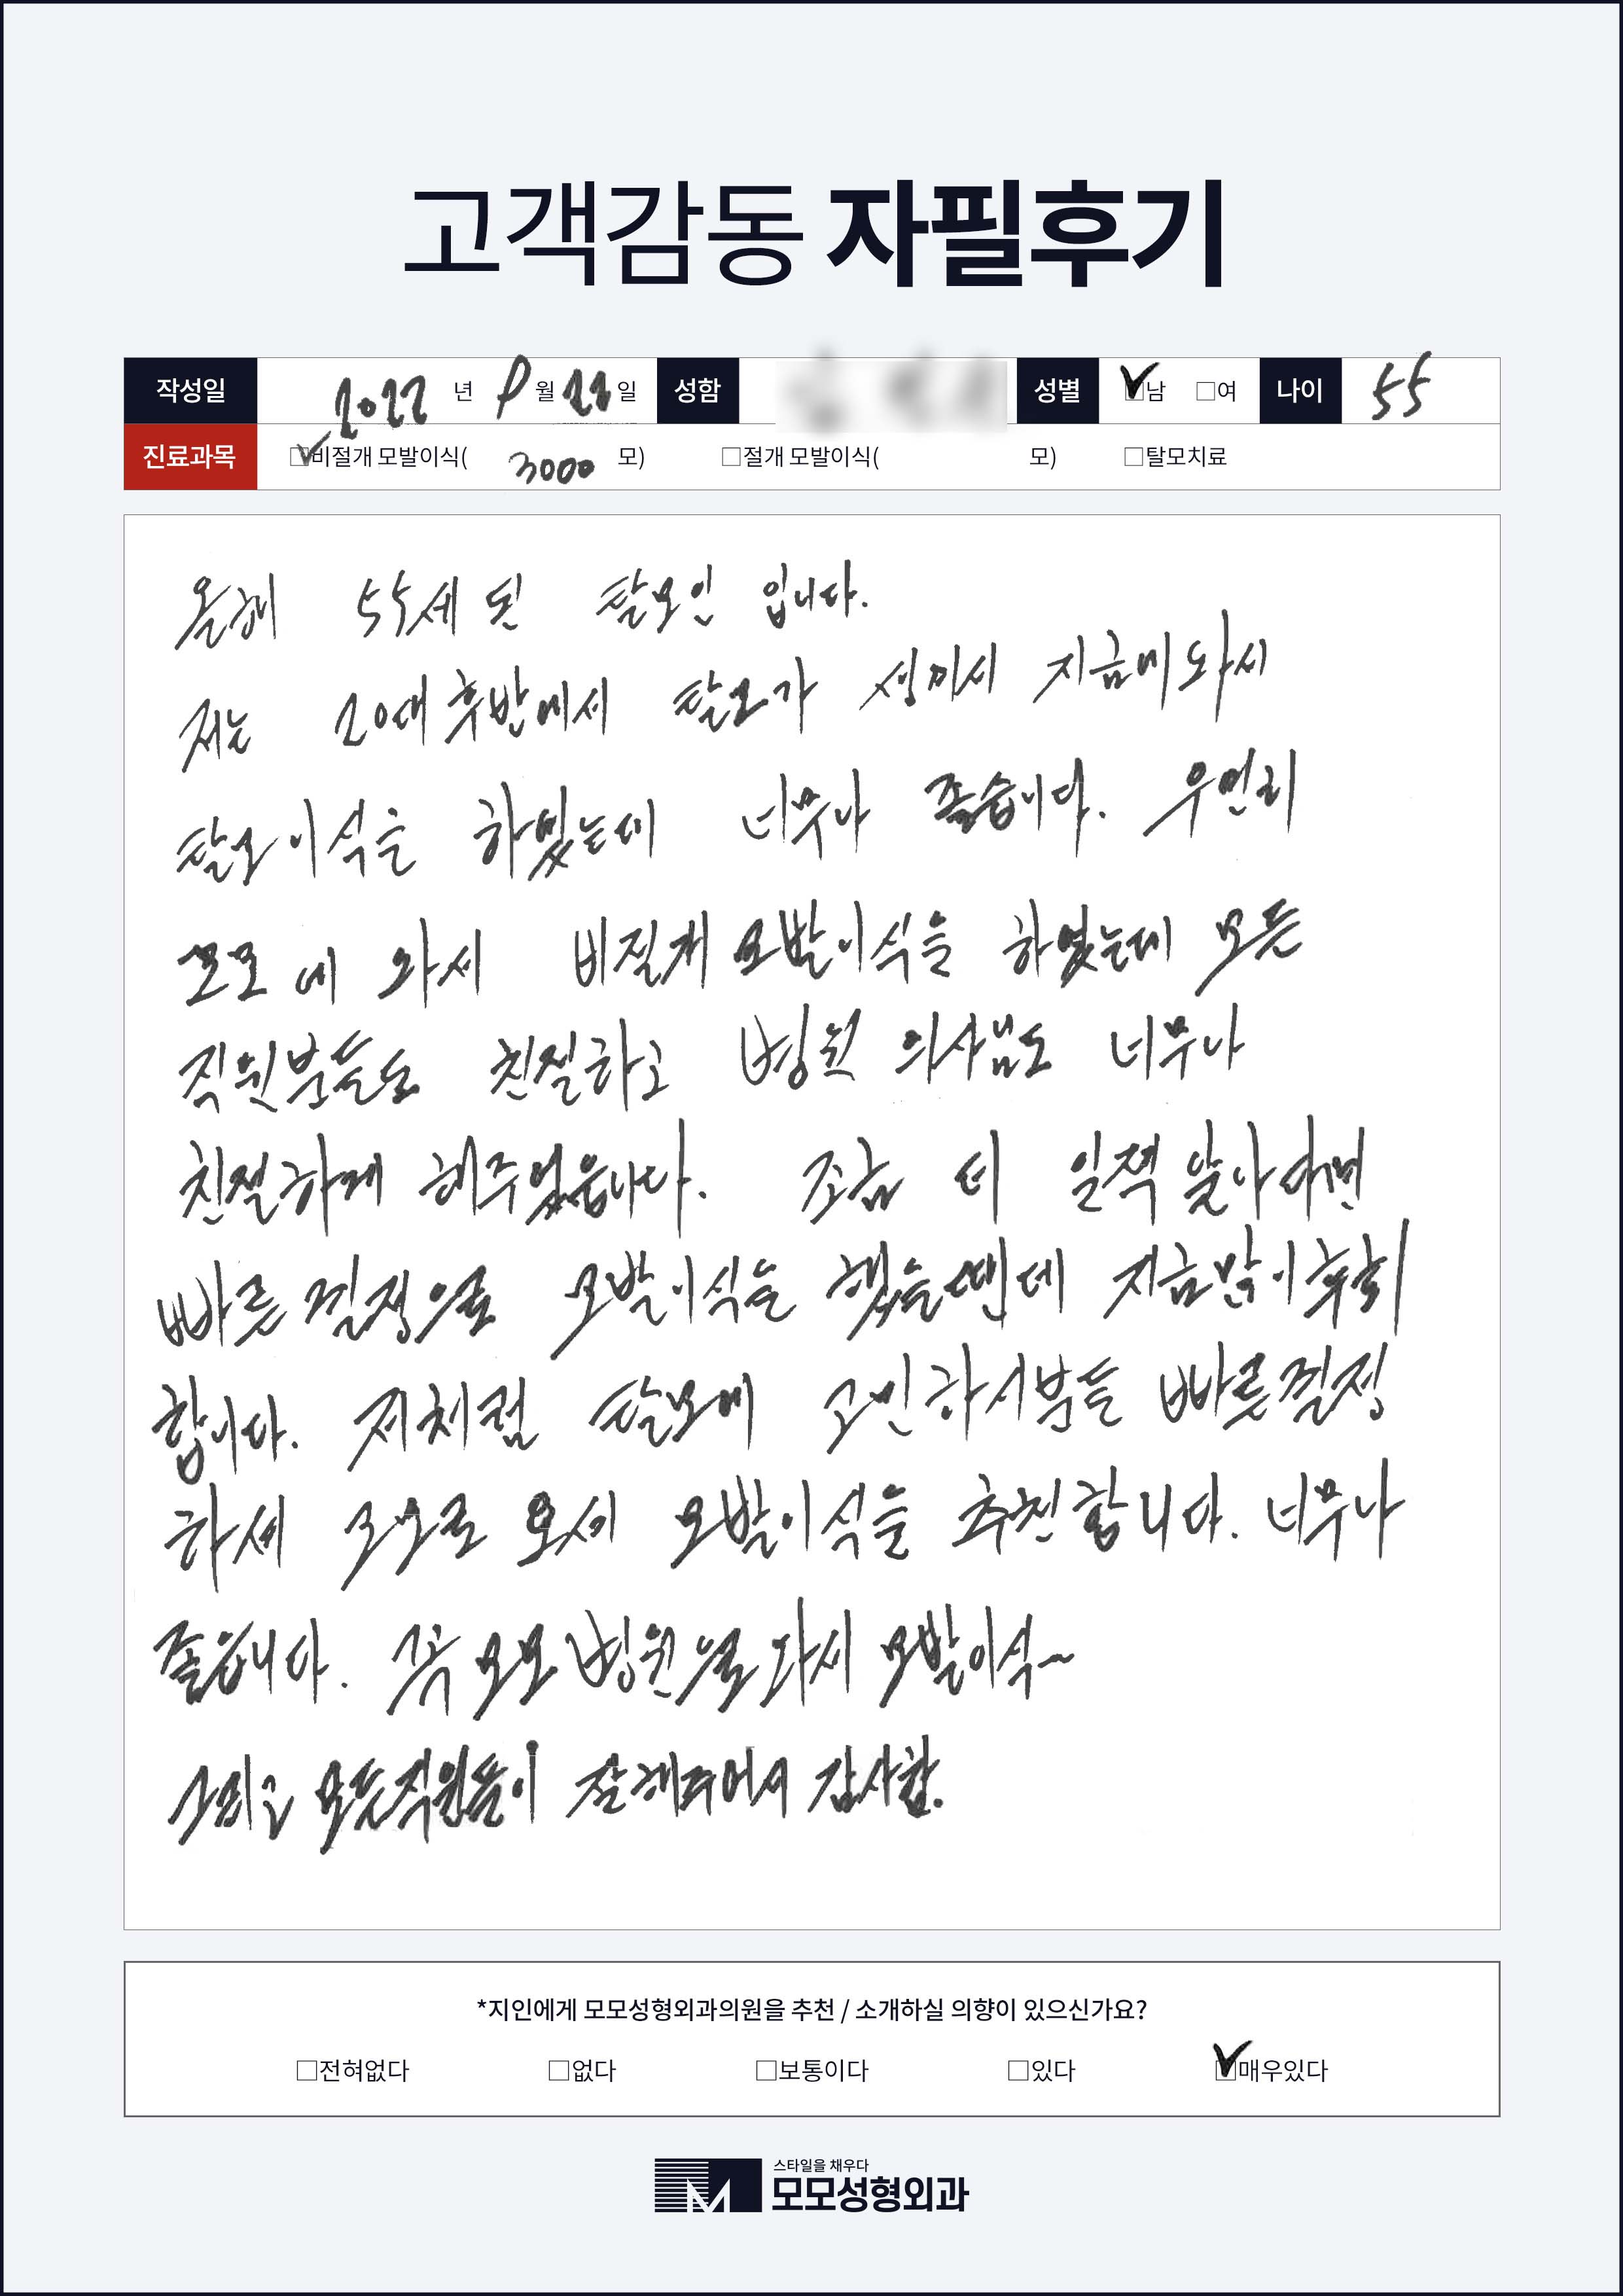 고객감동 자필후기
작성일 2022 년 8 월 22 일 성함 성별 ☑남 □여 나이 55
진료과목 ☑비절개 모발이식( 3000 모) □절개 모발이식( 모) □탈모치료
올해 55세 된 탈모인 입니다.
저는 20대 후반에서 탈모가 생겨서 지금에 와서
탈모이식을 하였는데 너무나 좋습니다. 우연히
모모에 와서 비절개 모발이식을 하였는데 모든
직원분들도 친절하고 병원 의사님도 너무나
친절하게 해주었읍니다. 조금 더 일찍 알아다면
빠른 결정으로 모발이식을 했을텐데 지금많이후회
합니다. 저처럼 탈모에 고민하시분들 빠른결정
하셔 모모로 오셔 모발이식을 추천합니다. 너무나
좋읍니다. 꼭 모모병원으로 다시 모발이식~
그리고 모든직원들이 잘해주어서 감사함.
*지인에게 모모성형외과의원을 추천 / 소개하실 의향이 있으신가요?
□전혀없다 □없다 □보통이다 □있다 ☑매우있다
스타일을 채우다
모모성형외과